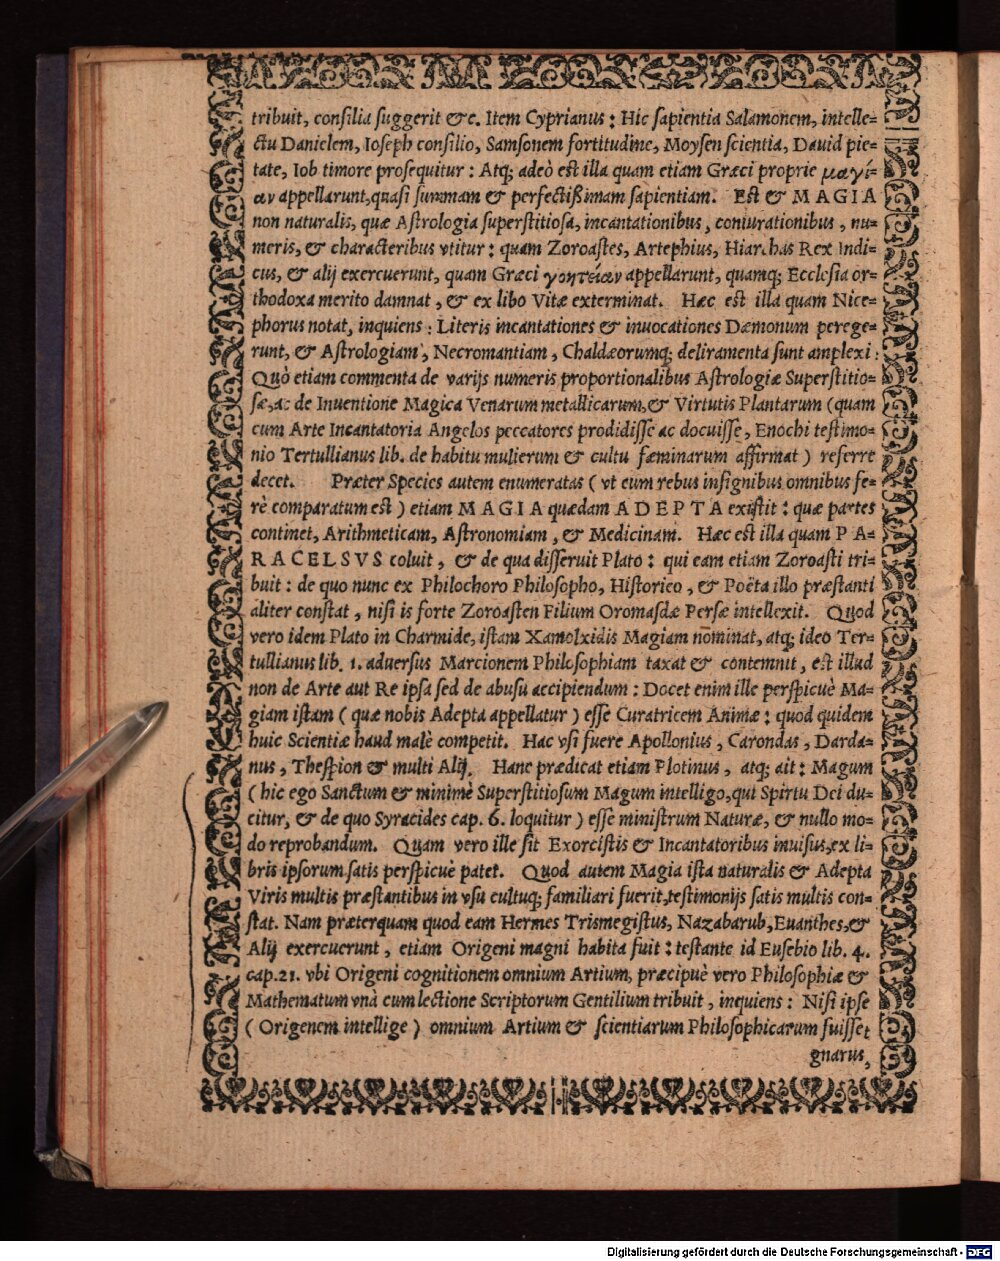 tribuit, consilia suggerit &c. Item Cyprianus: Hic sapientia Salamonem, intelle=
ctu Danielem, Ioseph consilio, Samsonem fortitudine, Moysen scientia, Dauid pie=
tate, Iob timore prosequitur: Atq; adeò est illa quam etiam Græci proprie μαγί=
αν appellarunt, quasi summam & perfectißimam sapientiam. Est & MAGIA
non naturalis, quæ Astrologia superstitiosa, incantationibus, coniurationibus, nu=
meris, & characteribus vtitur: quam Zoroastes, Artephius, Hiarchas Rex Indi=
cus, & alij exercuerunt, quam Græci γοητείαν appellarunt, quamq; Ecclesia or=
thodoxa merito damnat, & ex libo Vitæ exterminat. Hæc est illa quam Nice=
phorus notat, inquiens: Literis incantationes & inuocationes Dæmonum perege=
runt, & Astrologiam, Necromantiam, Chaldæorumq; deliramenta sunt amplexi:
Quò etiam commenta de varijs numeris proportionalibus Astrologiæ Superstitio=
sæ, ac de Inuentione Magica Venarum metallicarum, & Virtutis Plantarum (quam
cum Arte Incantatoria Angelos peccatores prodidisse ac docuisse, Enochi testimo=
nio Tertullianus lib. de habitu mulierum & cultu fæminarum affirmat) referre
decet. Præter Species autem enumeratas (vt cum rebus insignibus omnibus fe=
rè comparatum est) etiam MAGIA quædam ADEPTA existit: quæ partes
continet, Arithmeticam, Astronomiam, & Medicinam. Hæc est illa quam PA=
RACELSVS coluit, & de qua disseruit Plato: qui eam etiam Zoroasti tri=
buit: de quo nunc ex Philochoro Philosopho, Historico, & Poëta illo præstanti
aliter constat, nisi is forte Zoroasten Filium Oromasdæ Persæ intellexit. Quod
vero idem Plato in Charmide, istam Xamolxidis Magiam nominat, atq; ideo Ter=
tullianus lib. 1. aduersus Marcionem Philosophiam taxat & contemnit, est illud
non de Arte aut Re ipsa sed de abusu accipiendum: Docet enim ille perspicuè Ma=
giam istam (quæ nobis Adepta appellatur) esse Curatricem Animæ: quod quidem
huic Scientiæ haud malè competit. Hac vsi fuere Apollonius, Carondas, Darda=
nus, Thespion & multi Alij. Hanc prædicat etiam Plotinus, atq; ait: Magum
(hic ego Sanctum & minimè Superstitiosum Magum intelligo, qui Spirtu Dei du=
citur, & de quo Syracides cap. 6. loquitur) esse ministrum Naturæ, & nullo mo=
do reprobandum. Quam vero ille sit Exorcistis & Incantatoribus inuisus, ex li=
bris ipsorum satis perspicuè patet. Quod autem Magia ista naturalis & Adepta
Viris multis præstantibus in vsu cultuq; familiari fuerit, testimonijs satis multis con=
stat. Nam præterquam quod eam Hermes Trismegistus, Nazabarub, Euanthes, &
Alij exercuerunt, etiam Origeni magni habita fuit: testante id Eusebio lib. 4.
cap. 21. vbi Origeni cognitionem omnium Artium, præcipuè vero Philosophiæ &
Mathematum vnà cum lectione Scriptorum Gentilium tribuit, inquiens: Nisi ipse
(Origenem intellige) omnium Artium & scientiarum Philosophicarum fuisset
gnarus,
Digitalisierung gefördert durch die Deutsche Forschungsgemeinschaft - DFG